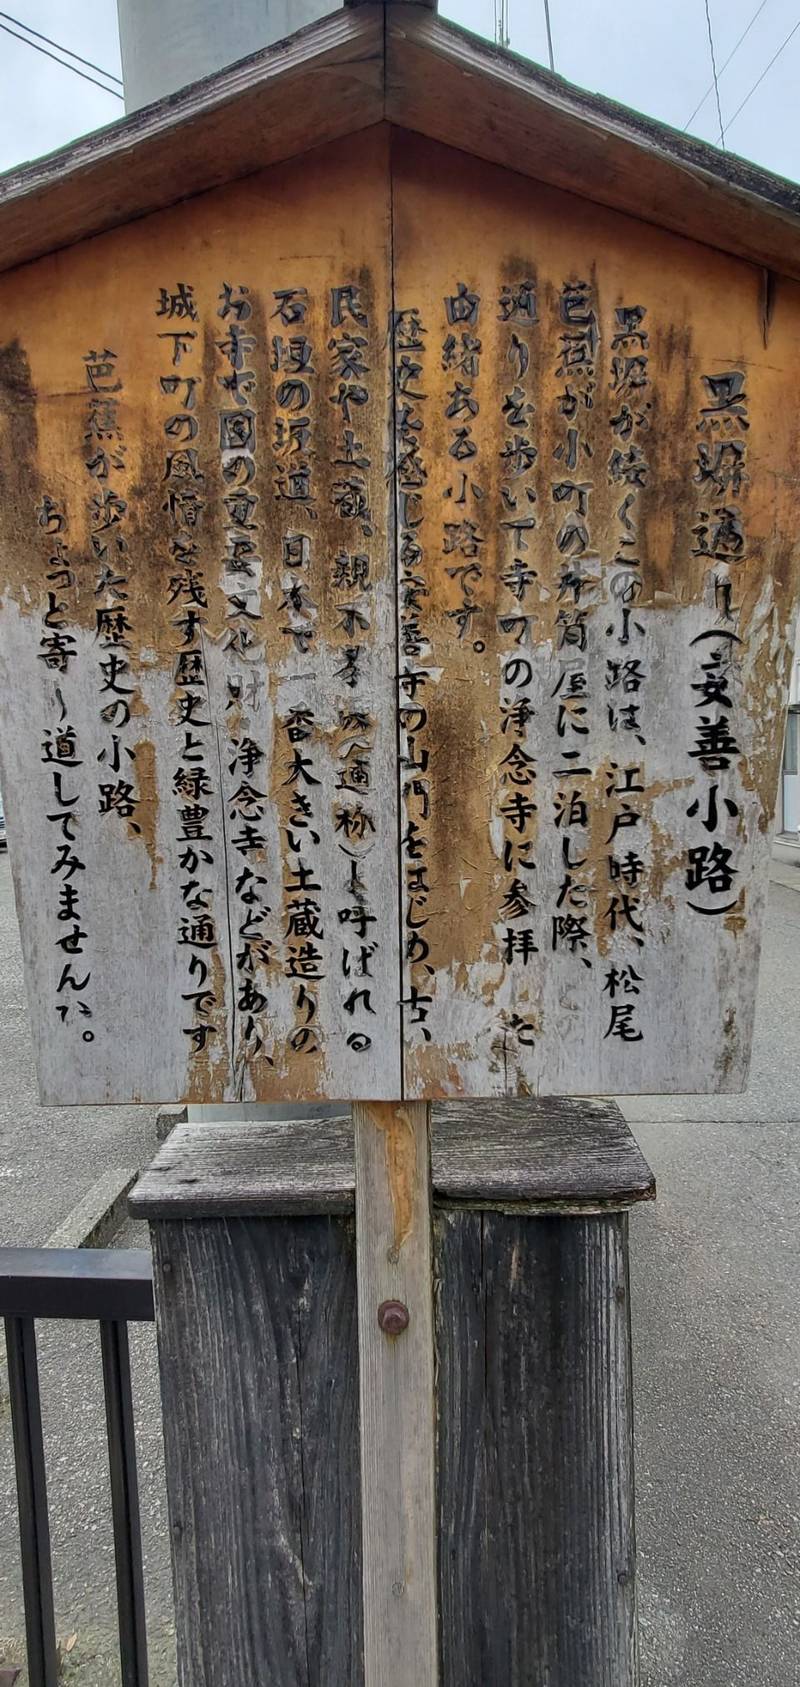 黒塀通り(安善小路)
黒塀が続くこの小路は、江戸時代、松尾
芭蕉が小町の井筒屋に二泊した際、この
通りを歩いて寺町の浄念寺に参拝した
由緒ある小路です。
歴史を感じる安善寺の山門をはじめ、古い
民家や土蔵、親不孝坂(通称)と呼ばれる
石垣の坂道、日本で一番大きい土蔵造りの
お寺で国の重要文化財浄念寺などがあり、
城下町の風情を残す歴史と緑豊かな通りです
芭蕉が歩いた歴史の小路、
ちょっと寄り道してみませんか。